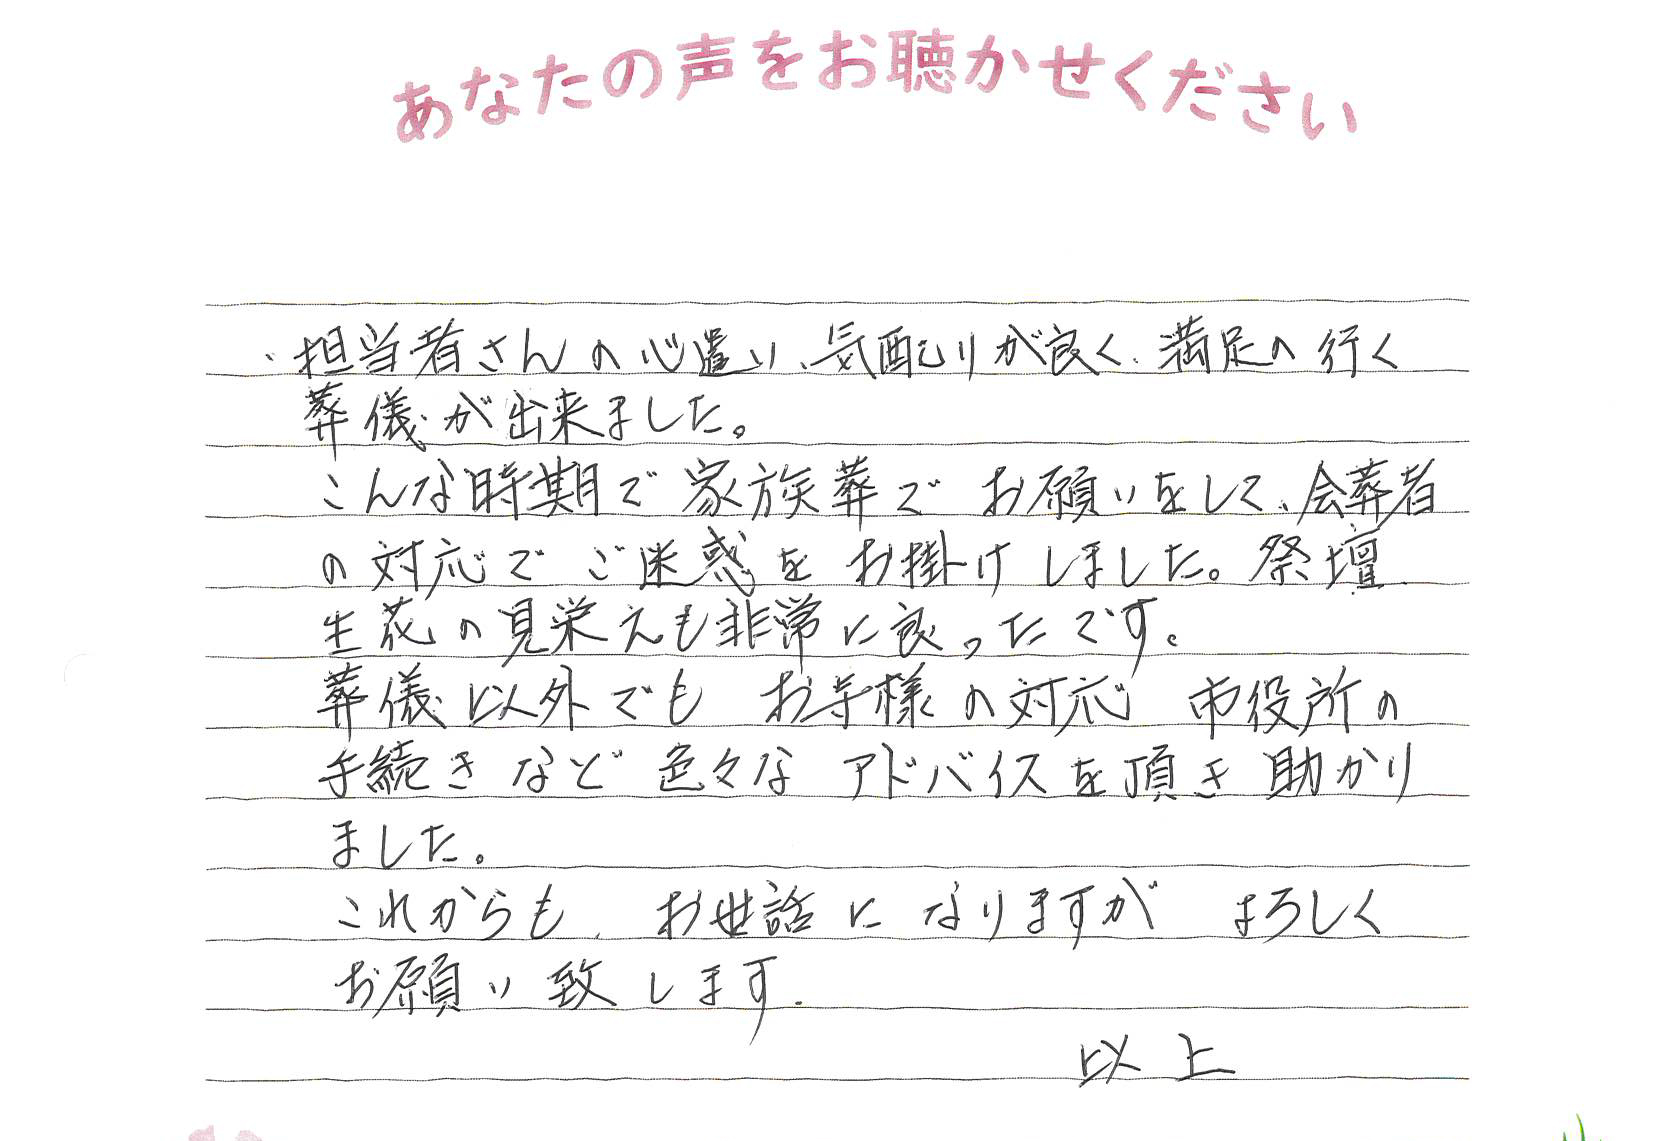 あなたの声をお聴かせください
・担当者さんの心遣い、気配りが良く、満足の行く
葬儀が出来ました。
こんな時期で家族葬でお願いをして、会葬者
の対応でご迷惑をお掛けしました。祭壇
生花の見栄えも非常に良ったです。
葬儀以外でも お寺様の対応 市役所の
手続きなど色々なアドバイスを頂き助かり
ました。
これからも、お世話になりますが よろしく
お願い致します.
以上